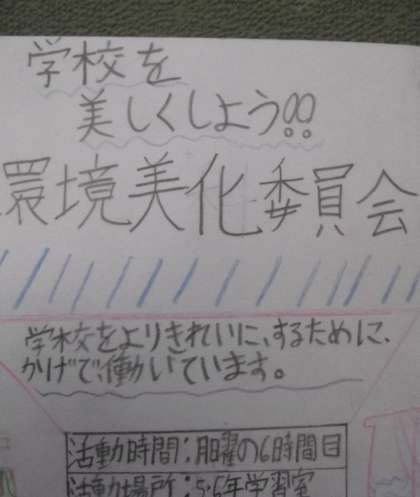 学校を
美しくしよう!!
環境美化委員会
学校をよりきれいに、するために、
かげで、働いています。
活動時間:月曜の6時間目
活動場所:5・6年学習室